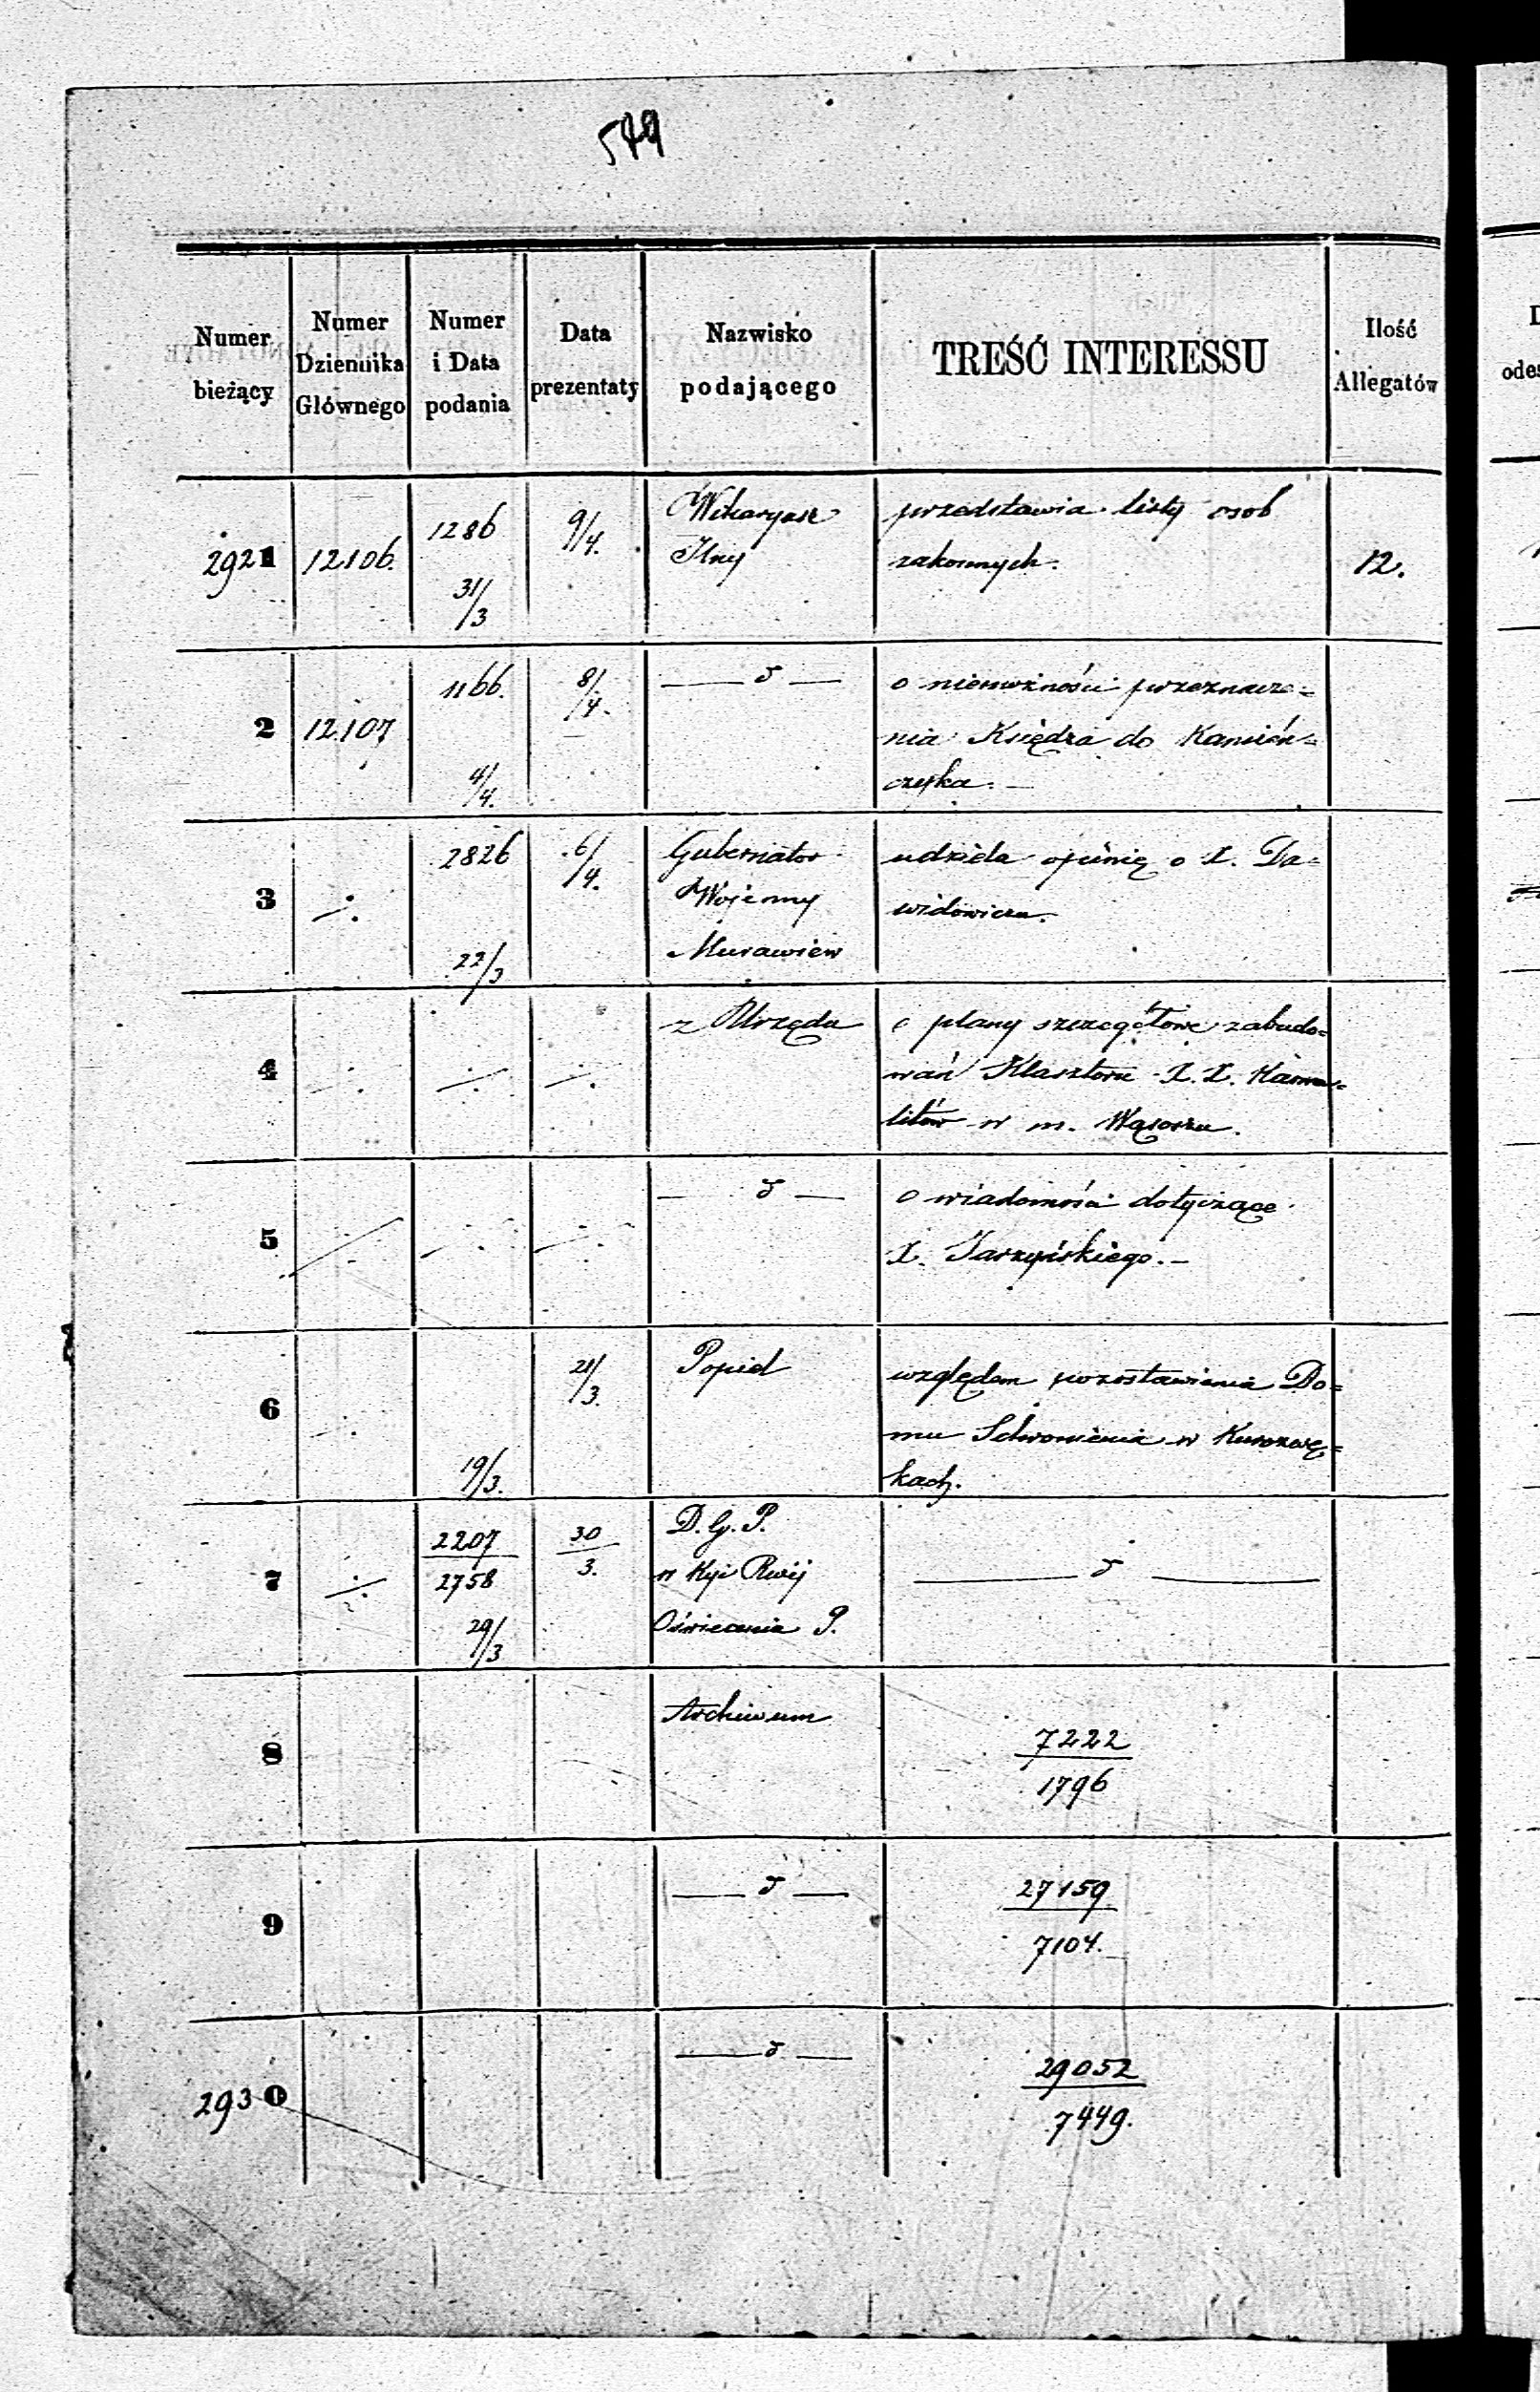 549
Numer bieżący
Numer Dziennika Głównego
Numer i Data podania
Data prezentaty
Nazwisko podającego
TREŚĆ INTERESSU
Ilość Allegatów
2921 12106. 1286 31/3 9/4. Wikaryusz przedstawia listy osob
zakonnych. 12.
2 12.107 1166. 4/4. 8/4. — d — o niemożności przeznacze=
nia Księdza do Kamień=
czyka. —
3 ·/. 2826 22/3 6/4. Gubernator udziela opinię o X. Da=
Wojenny widowiczu.
Murawiew
4 ·/. ·/. ·/. z Urzędu o plany szczegółowe zabudo=
wań Klasztoru X. X. Karme=
litów w m. Wąsoszu.
5 ·/. ·/. ·/. — d — o wiadomości dotyczące
X. Jarzyńskiego. —
6 ·/. 19/3. 21/3. Popiel względem pozostawienia Do=
mu Schronienia w Kurozwę=
kach.
7 ·/. 2207/2758 29/3 30/3. D. G. P. — d —
w Kyi Rwij
Oświecenia P.
8 Archiwum 7222
1796
9 — d — 27159
7104.
2930 — d — 29052
7449.